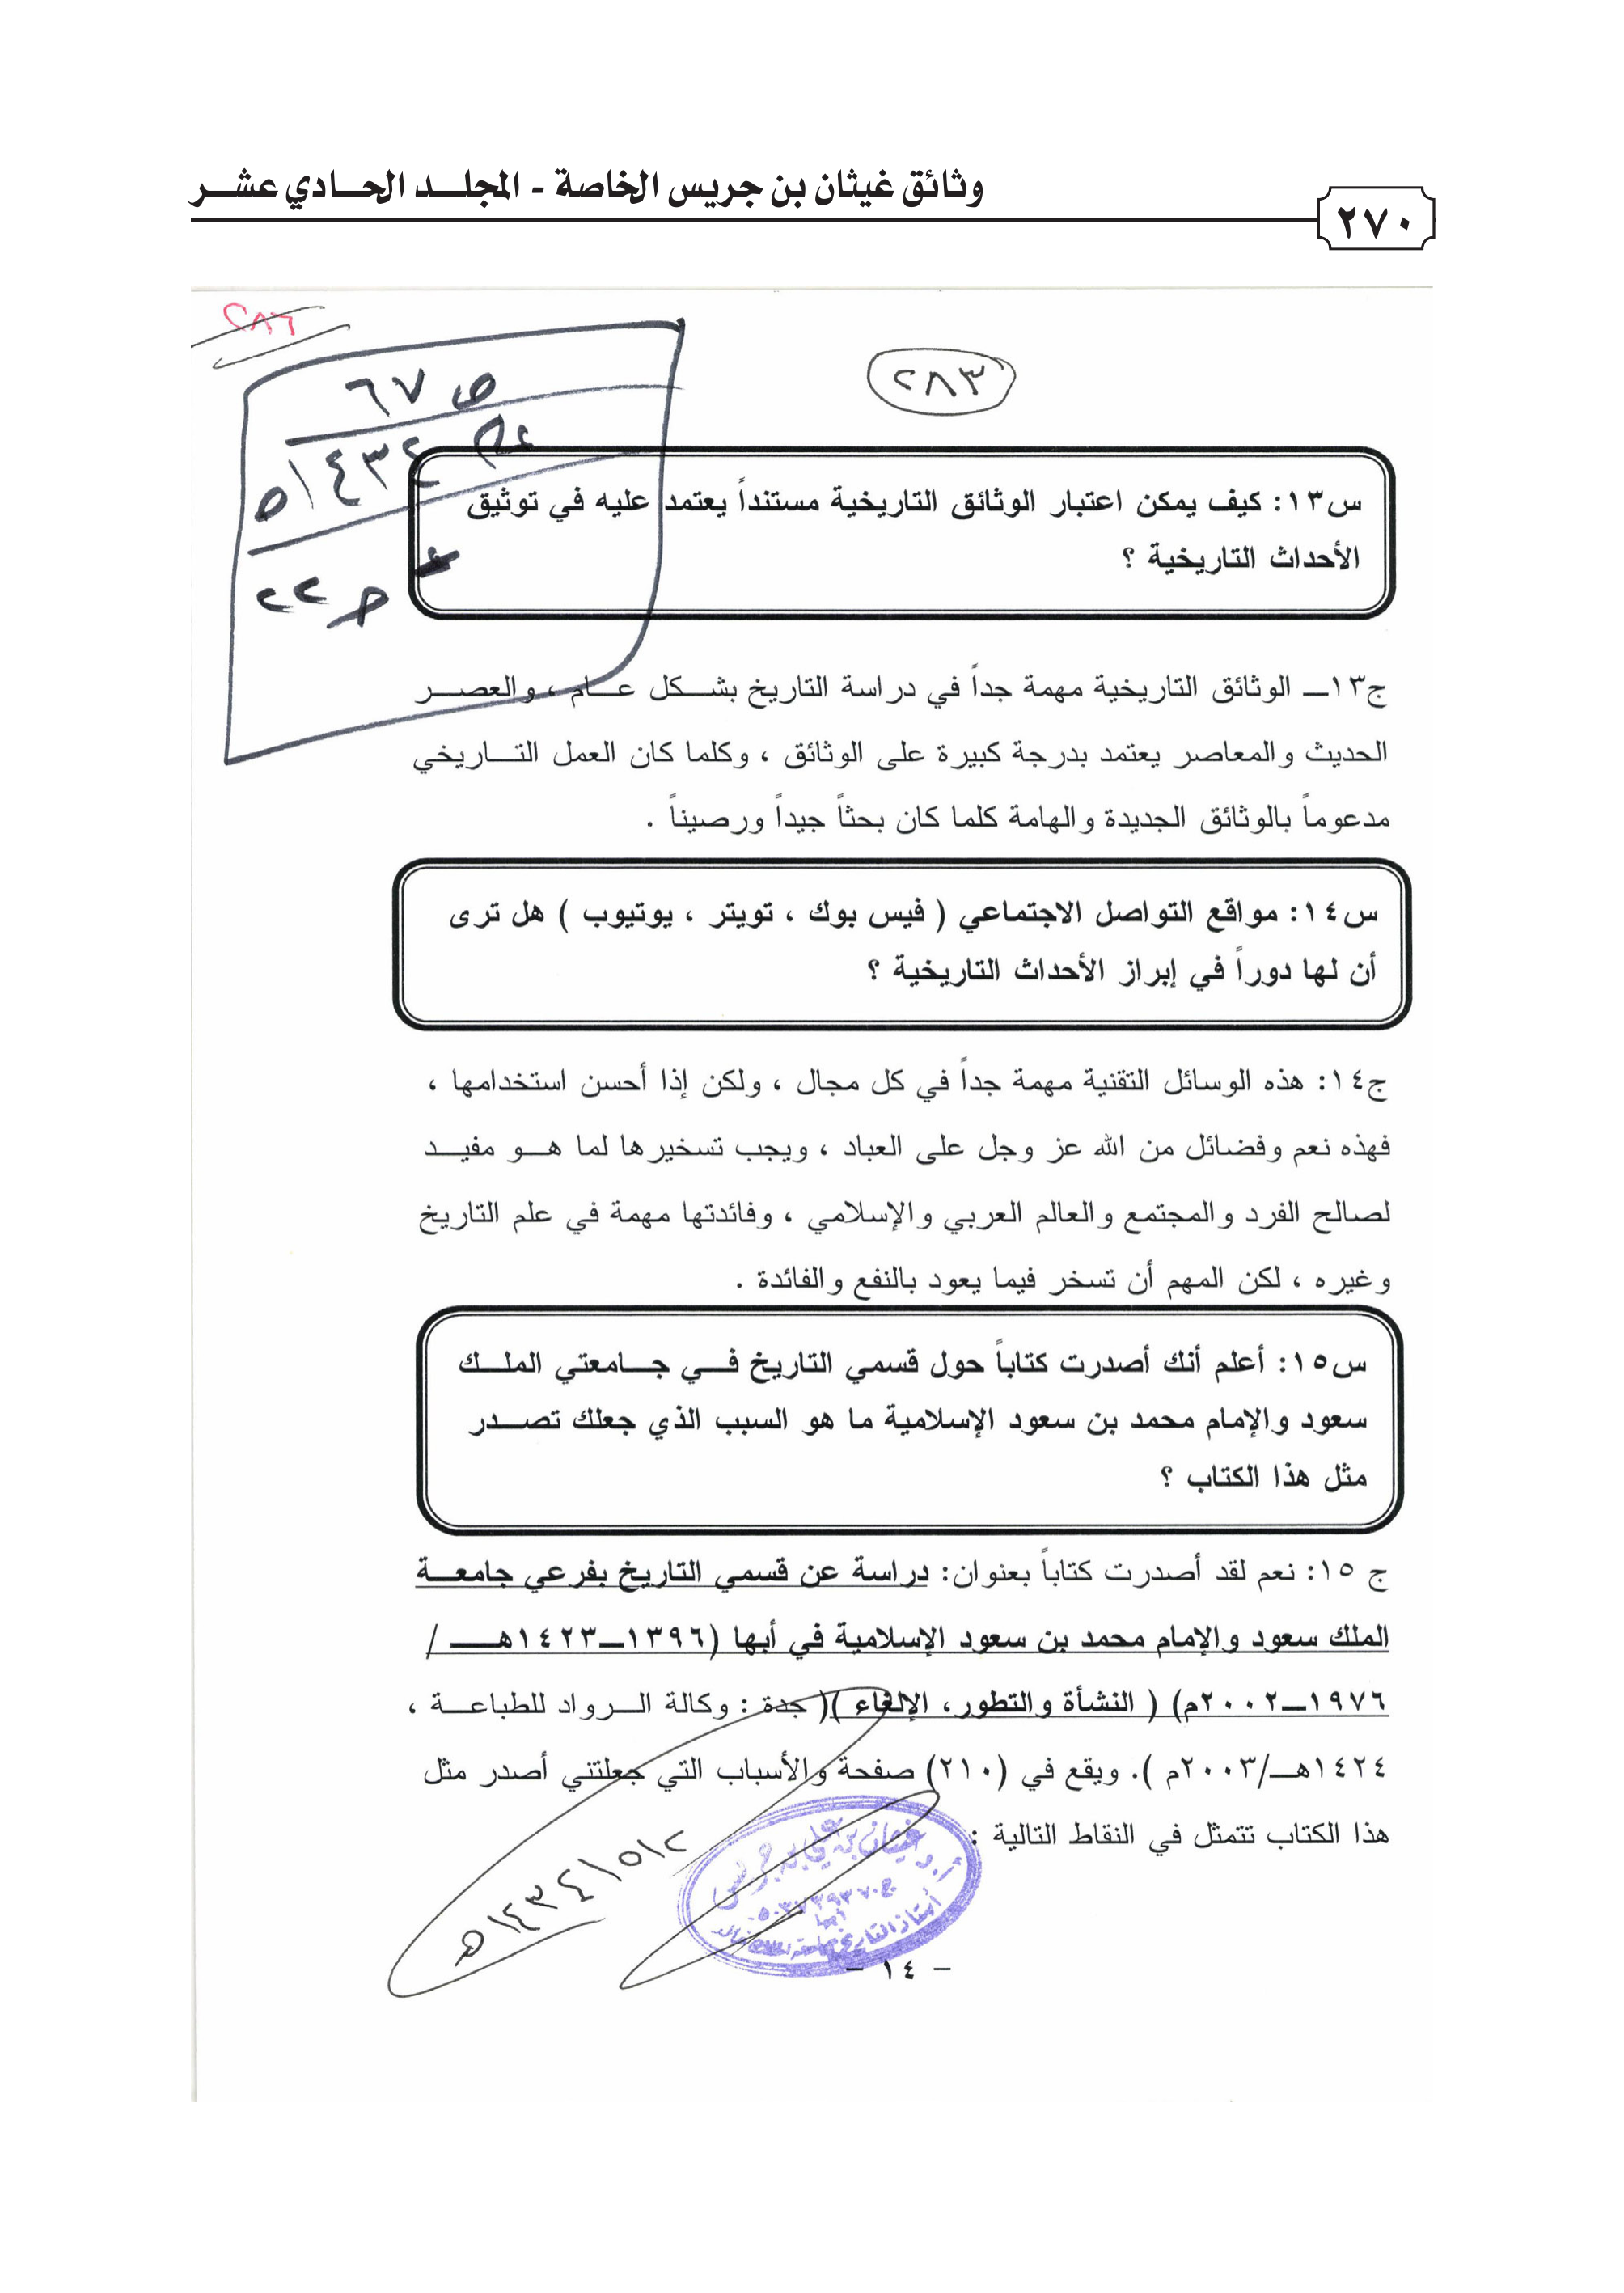 وثائق غيثان بن جريس الخاصة - المجلـــد الحـــادي عشـــر
٢٧٠
٢٨٦
٢٨٣
ص ٦٧
١٤٣٤هـ
٢٢
س١٣: كيف يمكن اعتبار الوثائق التاريخية مستنداً يعتمد عليه في توثيق
الأحداث التاريخية ؟
ج١٣ــ الوثائق التاريخية مهمة جداً في دراسة التاريخ بشـــكل عـــام ، والعصـــر
الحديث والمعاصر يعتمد بدرجة كبيرة على الوثائق ، وكلما كان العمل التـــاريخي
مدعوماً بالوثائق الجديدة والهامة كلما كان بحثاً جيداً ورصيناً .
س١٤: مواقع التواصل الاجتماعي ( فيس بوك ، تويتر ، يوتيوب ) هل ترى
أن لها دوراً في إبراز الأحداث التاريخية ؟
ج١٤: هذه الوسائل التقنية مهمة جداً في كل مجال ، ولكن إذا أحسن استخدامها ،
فهذه نعم وفضائل من الله عز وجل على العباد ، ويجب تسخيرها لما هـــو مفيـــد
لصالح الفرد والمجتمع والعالم العربي والإسلامي ، وفائدتها مهمة في علم التاريخ
وغيره ، لكن المهم أن تسخر فيما يعود بالنفع والفائدة .
س١٥: أعلم أنك أصدرت كتاباً حول قسمي التاريخ فـــي جـــامعتي الملـــك
سعود والإمام محمد بن سعود الإسلامية ما هو السبب الذي جعلك تصـــدر
مثل هذا الكتاب ؟
ج ١٥: نعم لقد أصدرت كتاباً بعنوان: دراسة عن قسمي التاريخ بفرعي جامعـــة
الملك سعود والإمام محمد بن سعود الإسلامية في أبها (١٣٩٦ــ١٤٢٣هـــ /
١٩٧٦ــ٢٠٠٢م) ( النشأة والتطور، الإلغاء )( جدة : وكالة الـــرواد للطباعـــة ،
١٤٢٤هـــ/٢٠٠٣م ). ويقع في (٢١٠) صفحة والأسباب التي جعلتني أصدر مثل
هذا الكتاب تتمثل في النقاط التالية :
أ.د غيثان بن علي بن جريس
ج ٠٥٠٣٧٣٩٣٧٠
أبها
أستاذ التاريخ بجامعة الملك خالد
١٤٣٤/٥/٢هـ
– ١٤ –